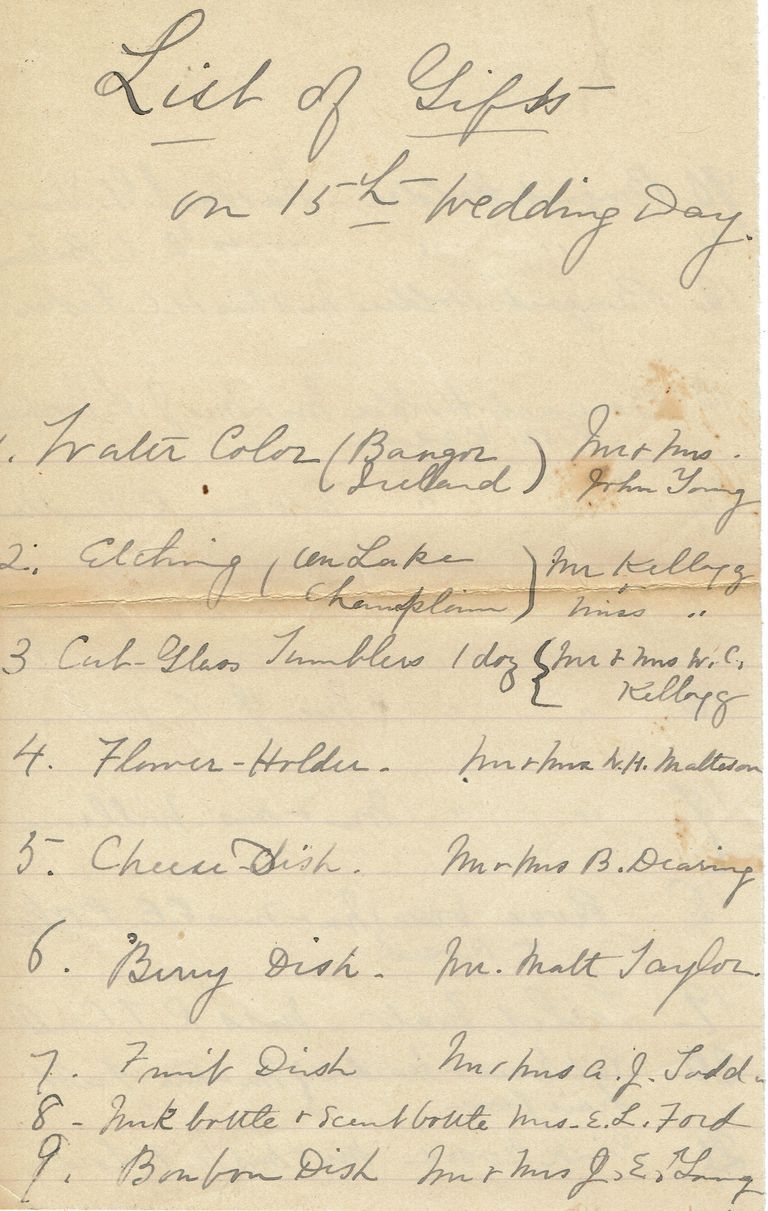 List of Gifts
on 15th Wedding Day.
1. Water Color (Bangor Ireland) Mr & Mrs. John Young
2. Etching (on Lake Champlain) Mr Kellogg & Miss "
3 Cut-Glass Tumblers 1 doz { Mr & Mrs W. C. Kellogg
4. Flower-Holder. Mr & Mrs W. H. Matteson
5. Cheese-Dish. Mr & Mrs B. Dearing
6. Berry Dish. Mr. Matt Taylor.
7. Fruit Dish Mr & Mrs A. J. Todd.
8 - Ink bottle & Scent bottle Mrs. E. L. Ford
9. Bonbon Dish Mr & Mrs J. E. Young